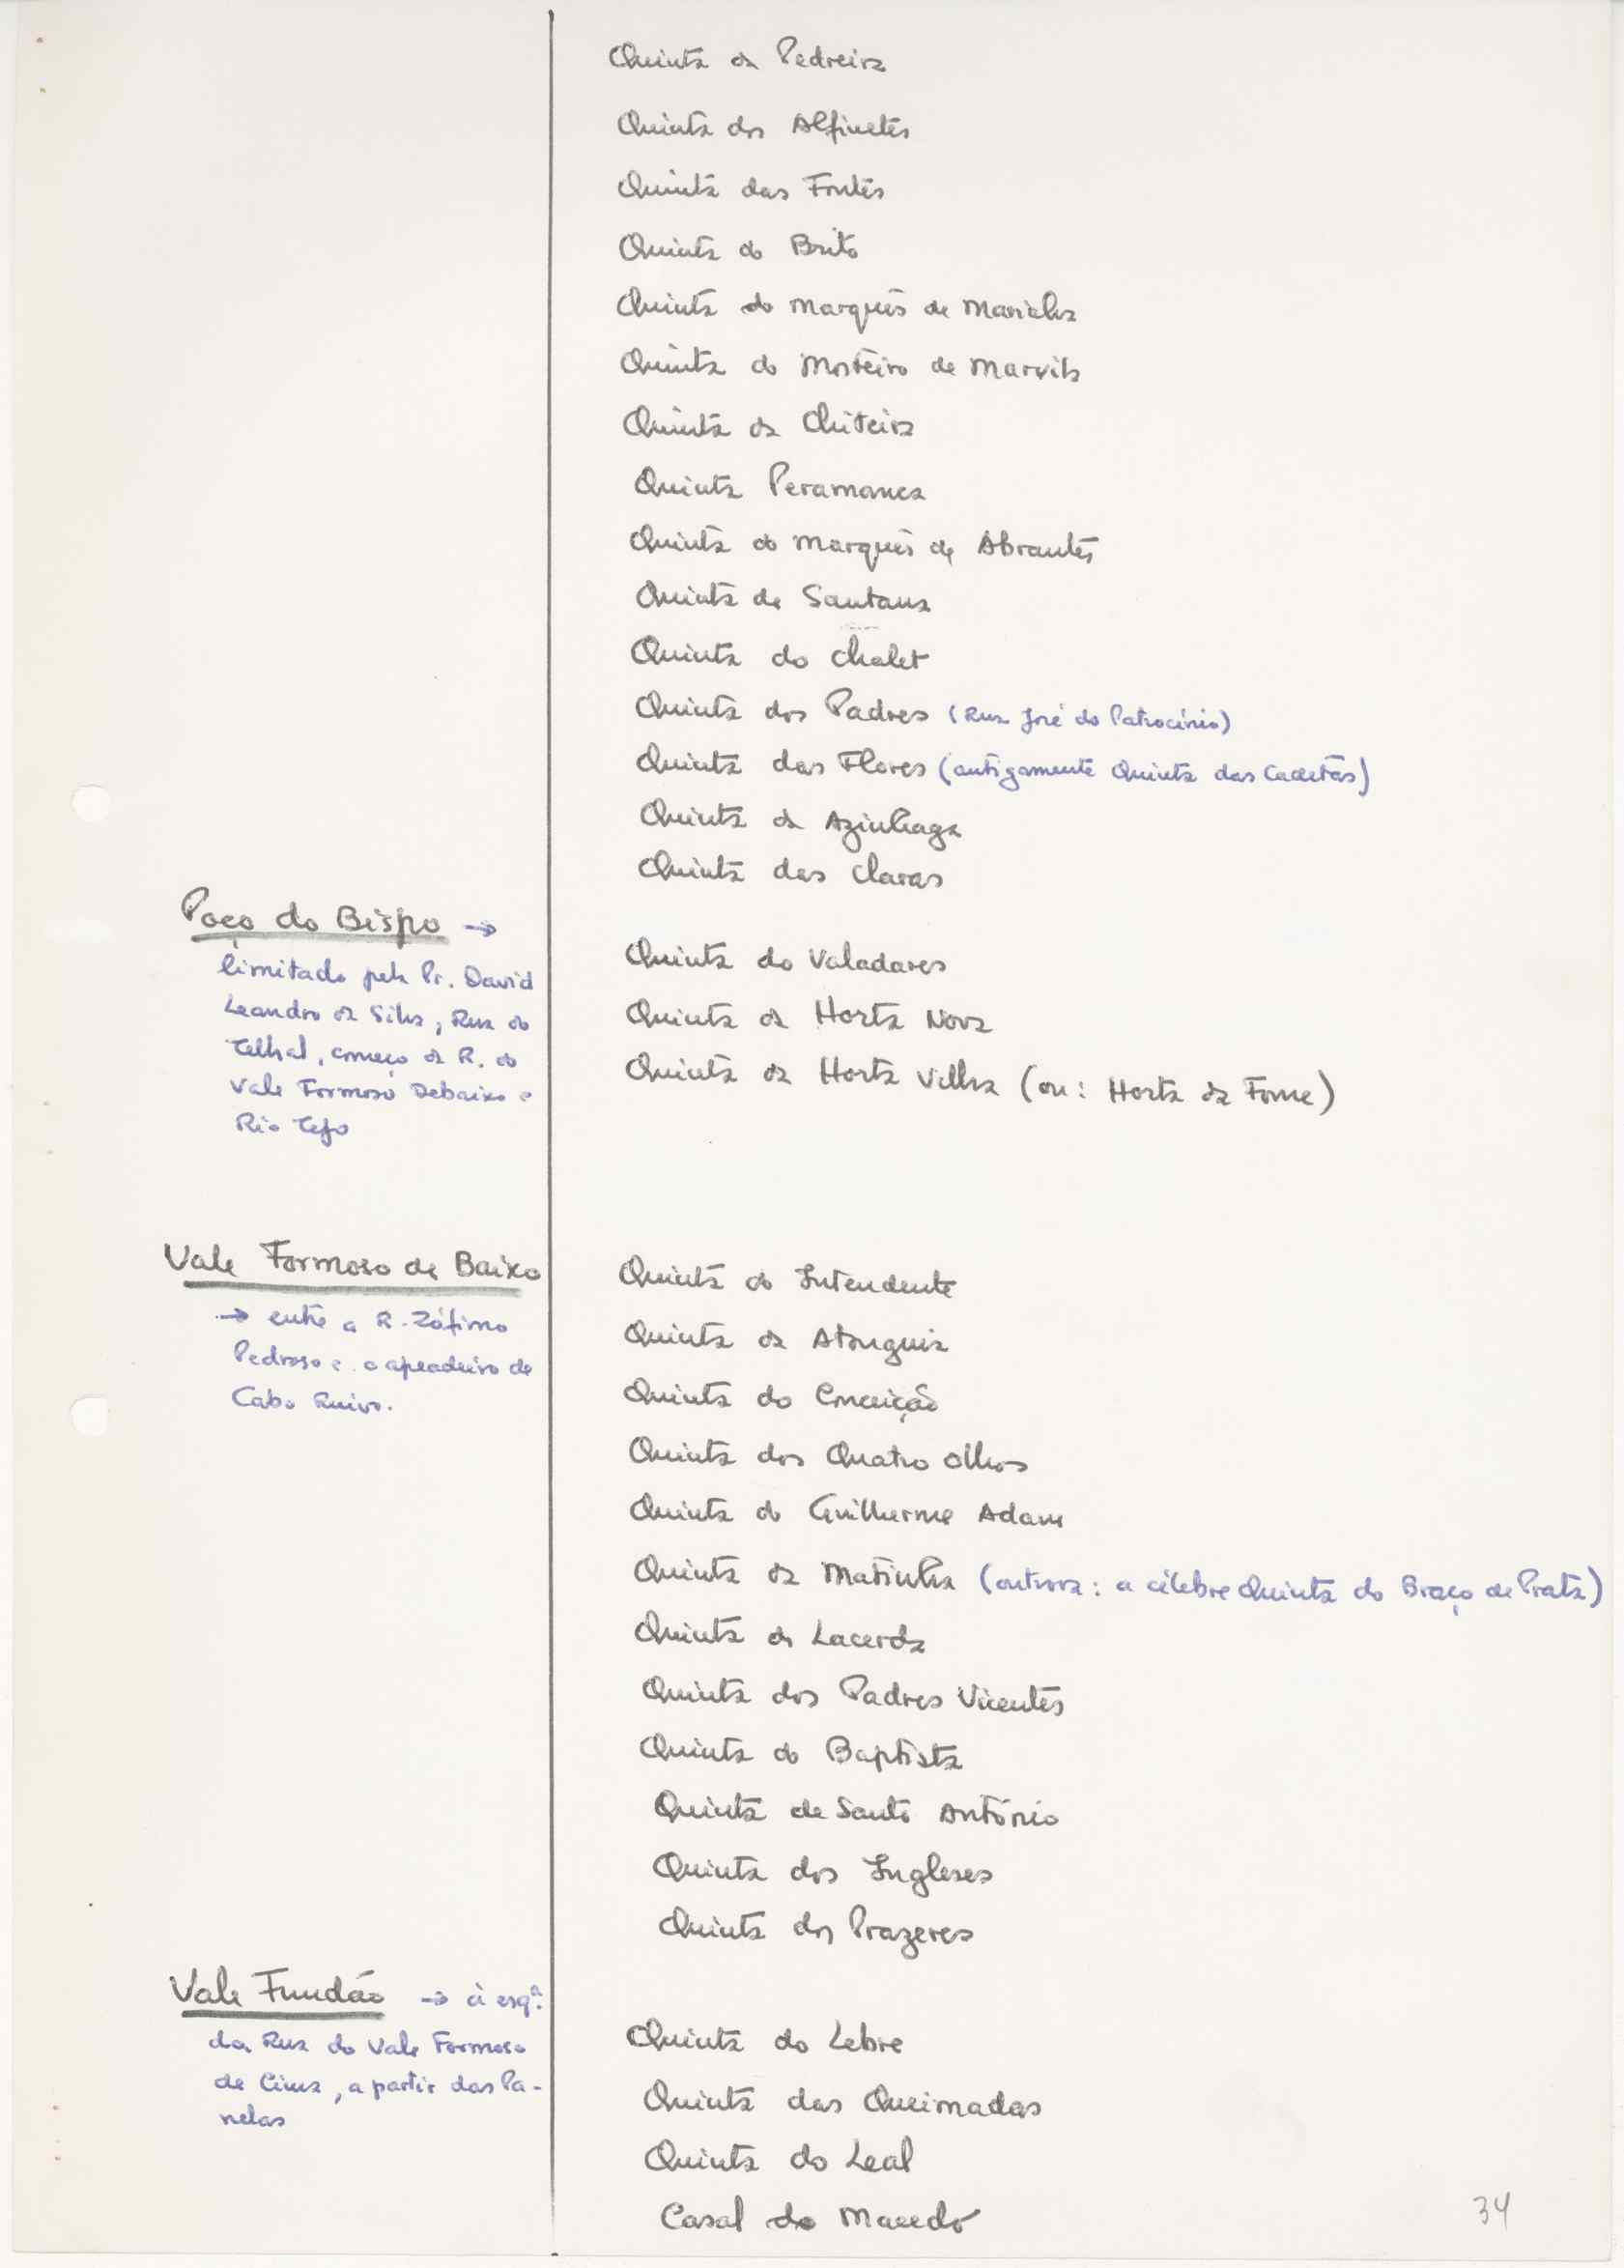 Quinta da Pedreira
Quinta dos Alfinetes
Quinta das Fontes
Quinta do Brito
Quinta do Marquês de Marialva
Quinta do Mosteiro de Marvila
Quinta da Chiteira
Quinta Peramanca
Quinta do Marquês de Abrantes
Quinta de Santana
Quinta do Chalet
Quinta dos Padres (Rua José do Patrocínio)
Quinta das Flores (antigamente Quinta das Caetãs)
Quinta da Azinhaga
Quinta das Claras
Poço do Bispo →
limitado pela Pr. David
Leandro da Silva, Rua do
Telhal, começo da R. do
Vale Formoso Debaixo e
Rio Tejo
Quinta do Valadares
Quinta da Horta Nova
Quinta da Horta Velha (ou: Horta da Fome)
Vale Formoso de Baixo
→ entre a R. Zófimo
Pedroso e o apeadeiro de
Cabo Ruivo.
Quinta do Intendente
Quinta da Atouguia
Quinta da Conceição
Quinta dos Quatro Olhos
Quinta do Guilherme Adam
Quinta da Matinha (outrora: a célebre Quinta do Braço de Prata)
Quinta da Lacerda
Quinta dos Padres Vicentes
Quinta do Baptista
Quinta de Santo António
Quinta dos Ingleses
Quinta dos Prazeres
Vale Fundão → à esqª.
da Rua do Vale Formoso
de Cima, a partir das Pa-
nelas
Quinta do Lebre
Quinta das Queimadas
Quinta do Leal
Casal do Macedo
34